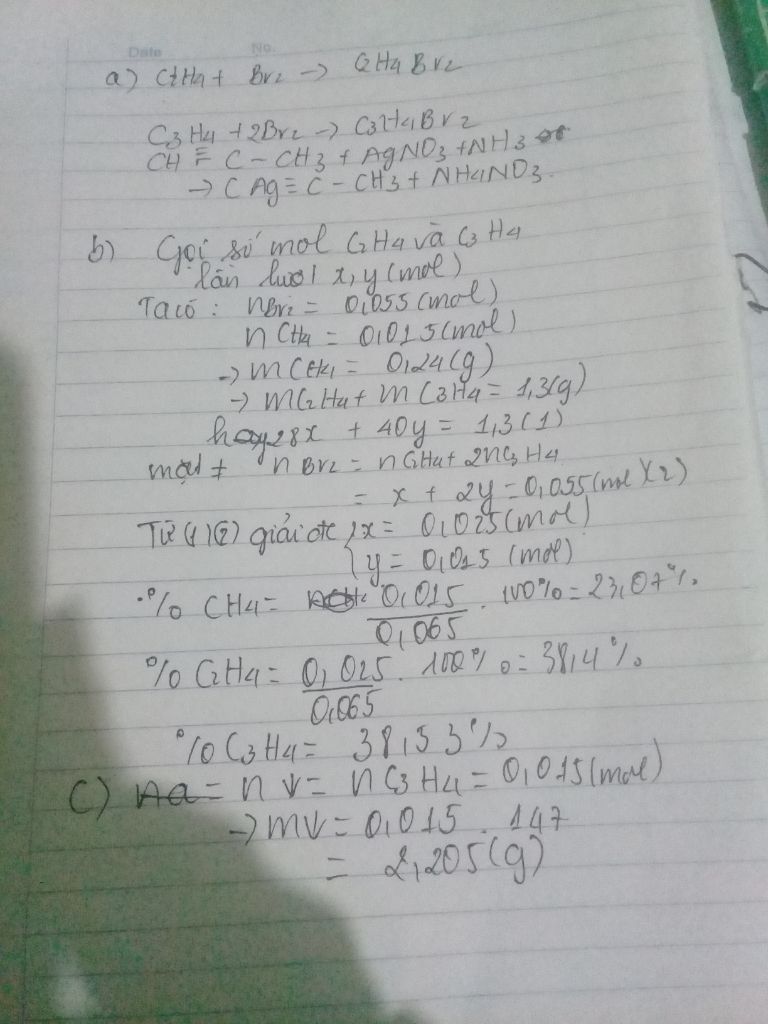 Date No.
a) C2H4 + Br2 → C2H4Br2
C3H4 + 2Br2 → C3H4Br2
CH ≡ C - CH3 + AgNO3 + NH3
→ CAg ≡ C - CH3 + NH4NO3.
b) Gọi số mol C2H4 và C3H4
lần lượt x, y (mol)
Ta có : nBr2 = 0,055 (mol)
n CH4 = 0,015 (mol)
→ m CH4 = 0,24 (g)
→ mC2H4 + m C3H4 = 1,3(g)
hay 28x + 40y = 1,3 (1)
mặt ≠ n Br2 = n C2H4 + 2nC3H4
= x + 2y = 0,055 (mol) (2)
Từ (1)(2) giải đc { x = 0,025 (mol)
{ y = 0,015 (mol)
% CH4 = 0,015/0,065 . 100% = 23,07%
% C2H4 = 0,025/0,065 . 100% = 38,4%
% C3H4 = 38,53%
c) n↓ = n C3H4 = 0,015 (mol)
→ m↓ = 0,015 . 147
= 2,205 (g)